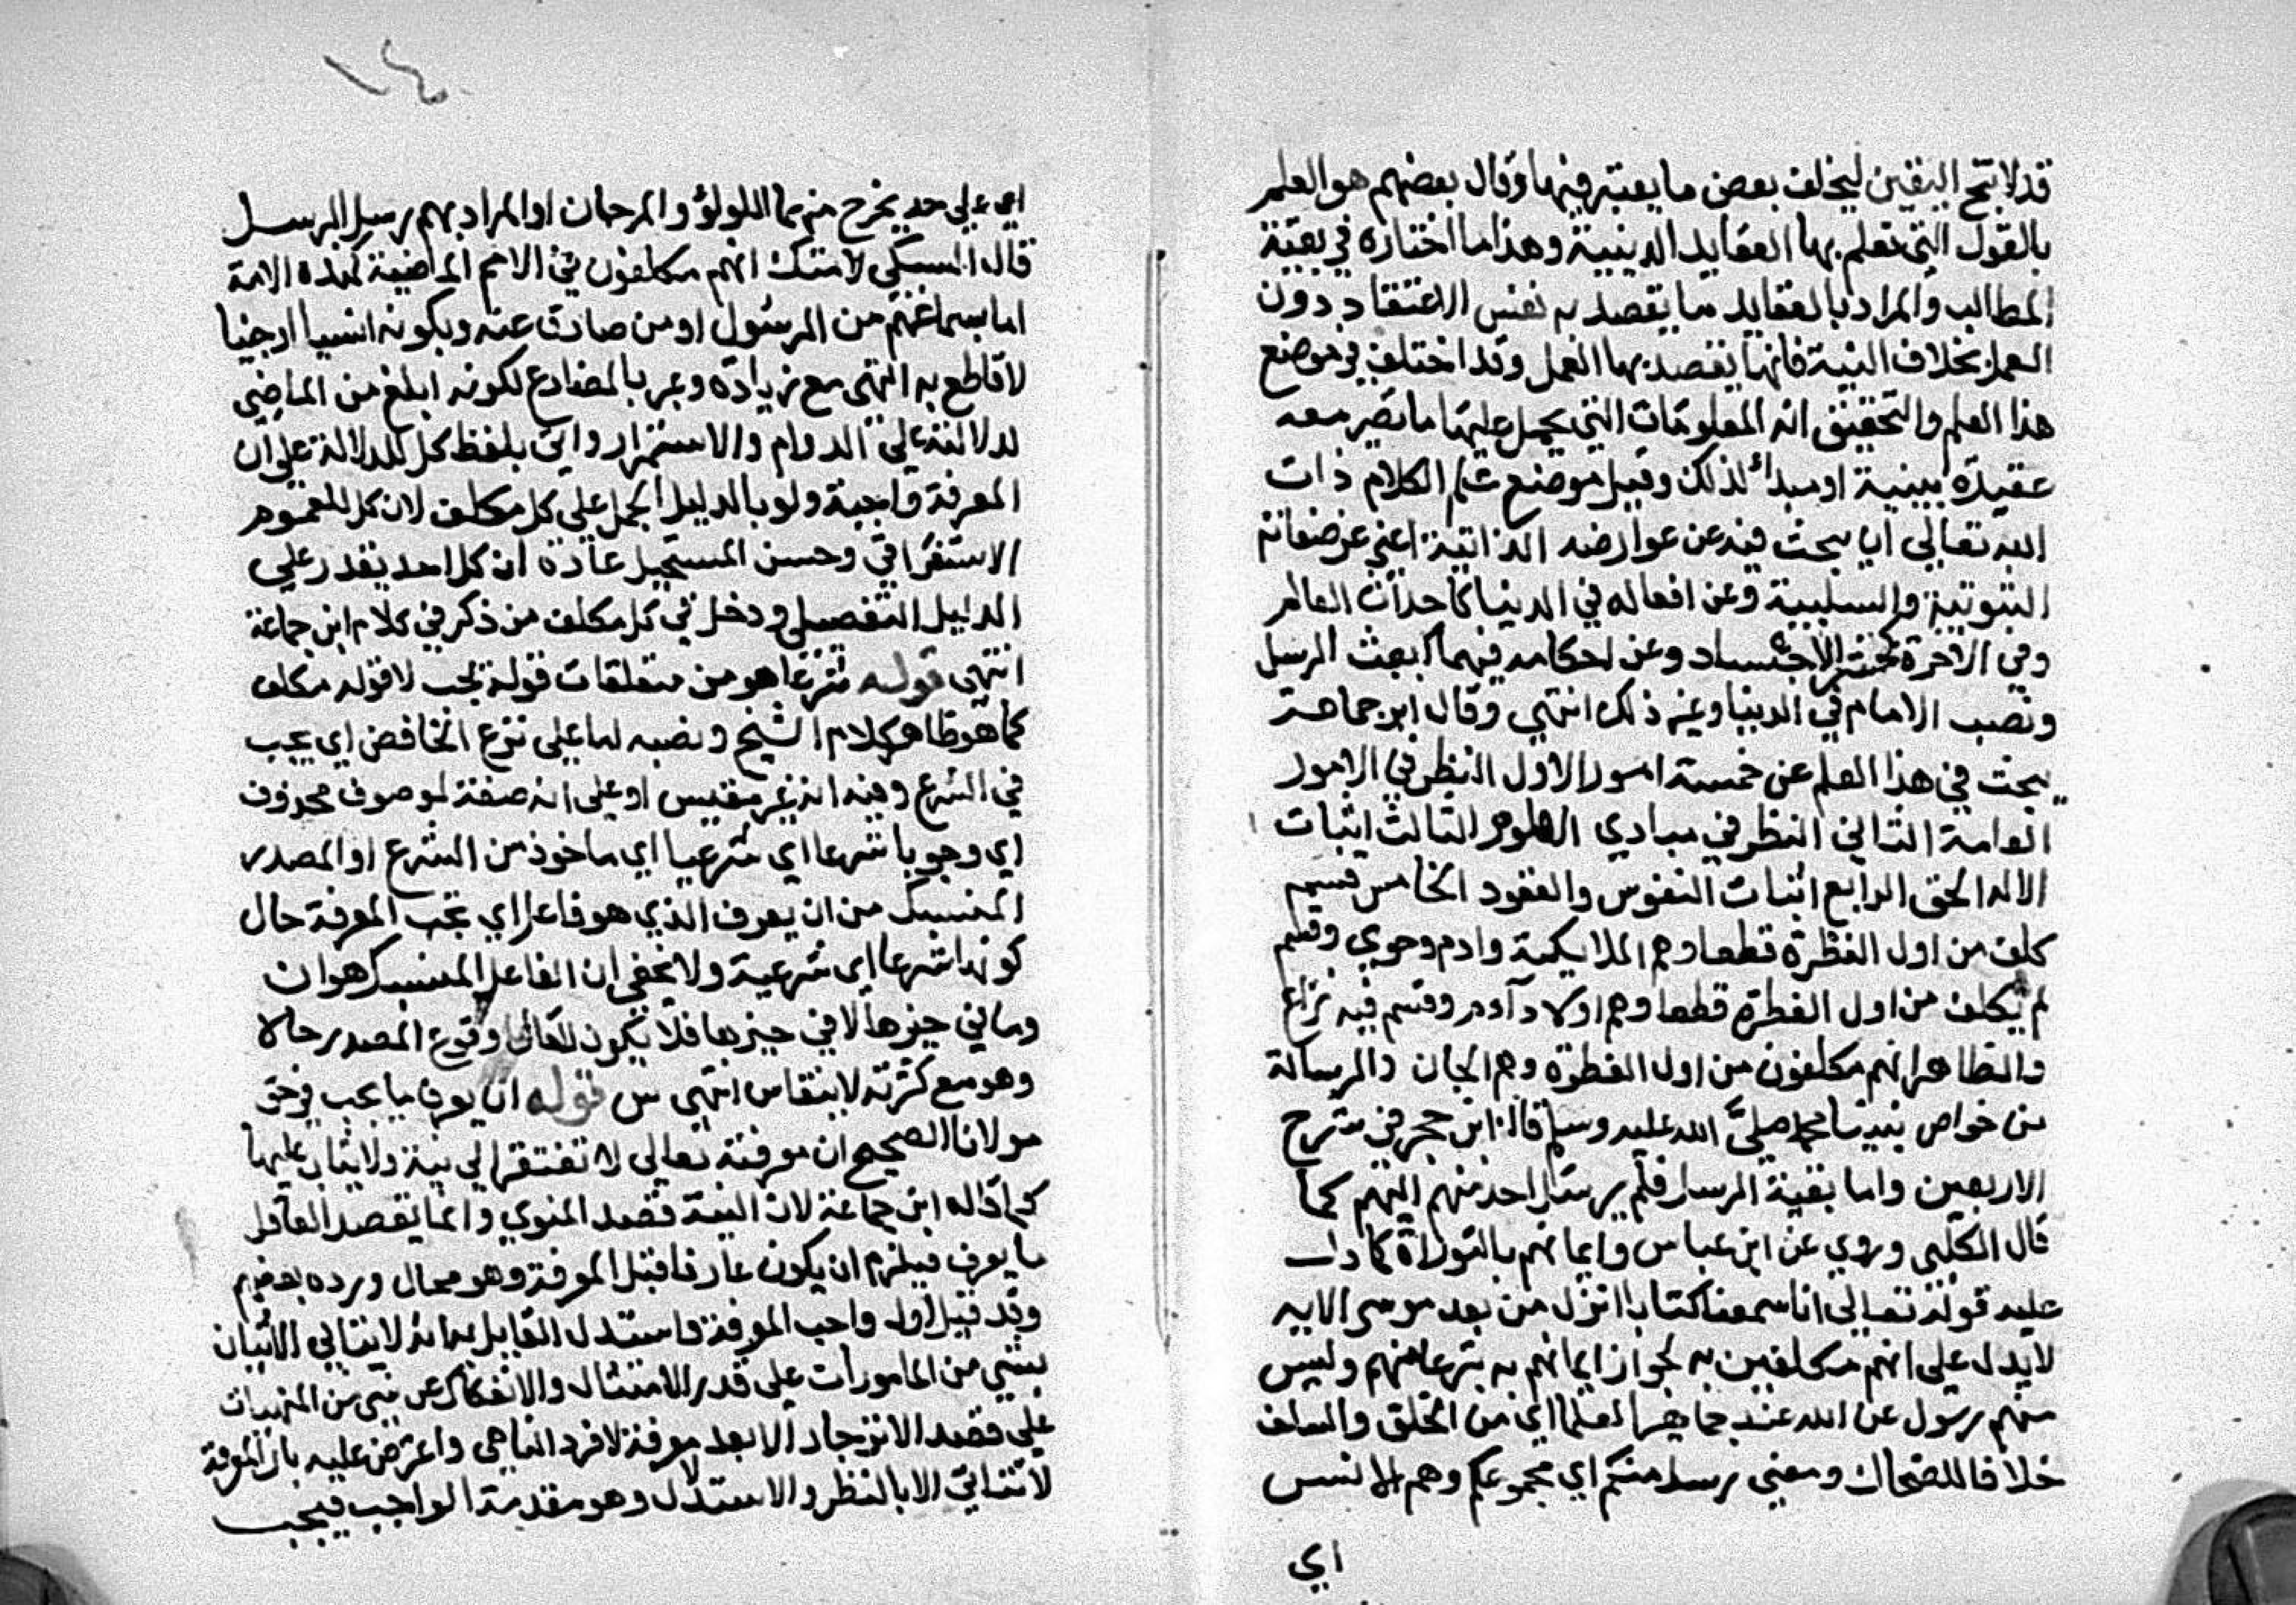 قد لا تنتج اليقين ليخلف بعض ما يعتبر فيها وقال بعضهم هو العلم
بالقول التي تعلم بها العقايد الدينية وهذا ما اختاره في بقية
المطالب والمراد بالعقايد ما يقصد به نفس الاعتقاد دون
العمل بخلاف النية فانها يقصد بها العمل وقد اختلف في موضع
هذا العلم والتحقيق انه المعلومات التي يحمل عليها ما تصير معه
عقيدة دينية او مبدأ لذلك وقيل موضع علم الكلام ذات
الله تعالي اي يبحث فيه عن عوارضه الذاتية اعني عن صفاته
الثبوتية والسلبية وعن افعاله في الدنيا كاحداث العالم
وفي الاخرة كحشر الاجساد وعن احكامه فيهما كبعث الرسل
ونصب الامام في الدنيا وغير ذلك انتهي وقال ابن جماعة
يبحث في هذا العلم عن خمسة امور الاول النظر في الامور
العامة الثاني النظر في مبادي العلوم الثالث اثبات
الاله الحق الرابع اثبات النفوس والعقود الخامس قسيم
كلف من اول الفطرة قطعا وهم الملايكة وادم وحوي وقسم
لم يكلف من اول الفطرة قطعا وهم اولاد آدم وقسم فيه نزاع
والظاهر انهم مكلفون من اول الفطرة وهم الجان والرسالة
من خواص نبينا محمد صلي الله عليه وسلم قاله ابن حجر في شرح
الاربعين واما بقية الرسل فلم يرسل احد منهم اليهم كما
قال الكلبي وروي عن ابن عباس وايمانهم بالتوراة كما دل
عليه قوله تعالي انا سمعنا كتابا انزل من بعد موسى الايه
لا يدل علي انهم مكلفين به لجواز ايمانهم به تبرعا منهم وليس
منهم رسول عن الله عند جماهير العلما اي من الخلق والسلف
خلافا للضحاك ومعني رسل منكم اي مجموعكم وهم الانس
اي
اي علي حد يخرج منهما اللولؤ والمرجان او المراد بهم رسل الرسل
قال السبكي لا شك انهم مكلفون في الامم الماضية كهذه الامة
اما بسماعهم من الرسول او من صادق عنه وبكونه انسيا او جنيا
لا قاطع به انتهى مع زيادة وعبر بالمضارع لكونه ابلغ من الماضي
لدلالته علي الدوام والاستمرار واتي بلفظ كل للدلالة على ان
المعرفة واجبة ولو بالدليل الجمل علي كل مكلف لان كل للعموم
الاستغراقي وحسن المستحيل عادة ان كل احد يقدر علي
الدليل التفصيلي ودخل في كل مكلف من ذكر في كلام ابن جماعة
انتهي قوله شرعا هو من متعلقات قوله يجب لا قوله مكلف
كما هو ظاهر كلام الشيخ ونصبه لها على نزع الخافض اي يجب
في الشرع وفيه انه غير مقيس او على انه صفة لموصوف محذوف
اي وجوبا شرعا اي شرعيا اي ماخوذ من الشرع او المصدر
المنسبك من ان يعرف الذي هو فاعل اي تجب المعرفة حال
كونها شرعا اي شرعية ولا يخفى ان الفاعل المنسبك هو ان
وما في حيزها لا في حيزها فلا يكون وقوع المصدر حالا
وهو مع كثرته لا ينقاس انتهي س قوله ان يعرف ما يجب في حق
مولانا الصحيح ان معرفته تعالي لا تفتقر الي نية ولا يثاب عليها
كما قاله ابن جماعة لان النية قصد المنوي وانما يقصد العاقل
ما يعرف فيلزم ان يكون عارفا قبل المعرفة وهو محال ورده بعضهم
وقد قيل اول واجب المعرفة واستدل القايل به بانه لا يتاتي الاتيان
بشي من المامورات علي قصد الامتثال والانفكاك عن شي من المنهيات
علي قصد الانزجار الا بعد معرفة الامر الناهي واعترض عليه بان المعرفة
لا تتاتي الا بالنظر والاستدلال وهو مقدمة الواجب فيجب